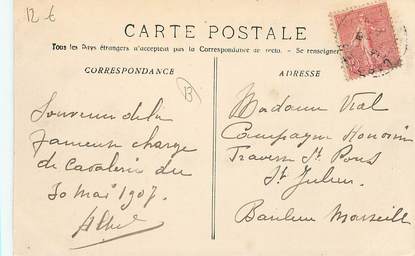 12 €
CARTE POSTALE
Tous les Pays étrangers n'acceptent pas la Correspondance au recto. - Se renseigner
CORRESPONDANCE
B
Souvenir de la
fameuse charge
de Cavalerie du
30 Mai 1907.
Albert
ADRESSE
Madame Vial
Campagne
Traverse St Pons
St Julien
Banlieue Marseille